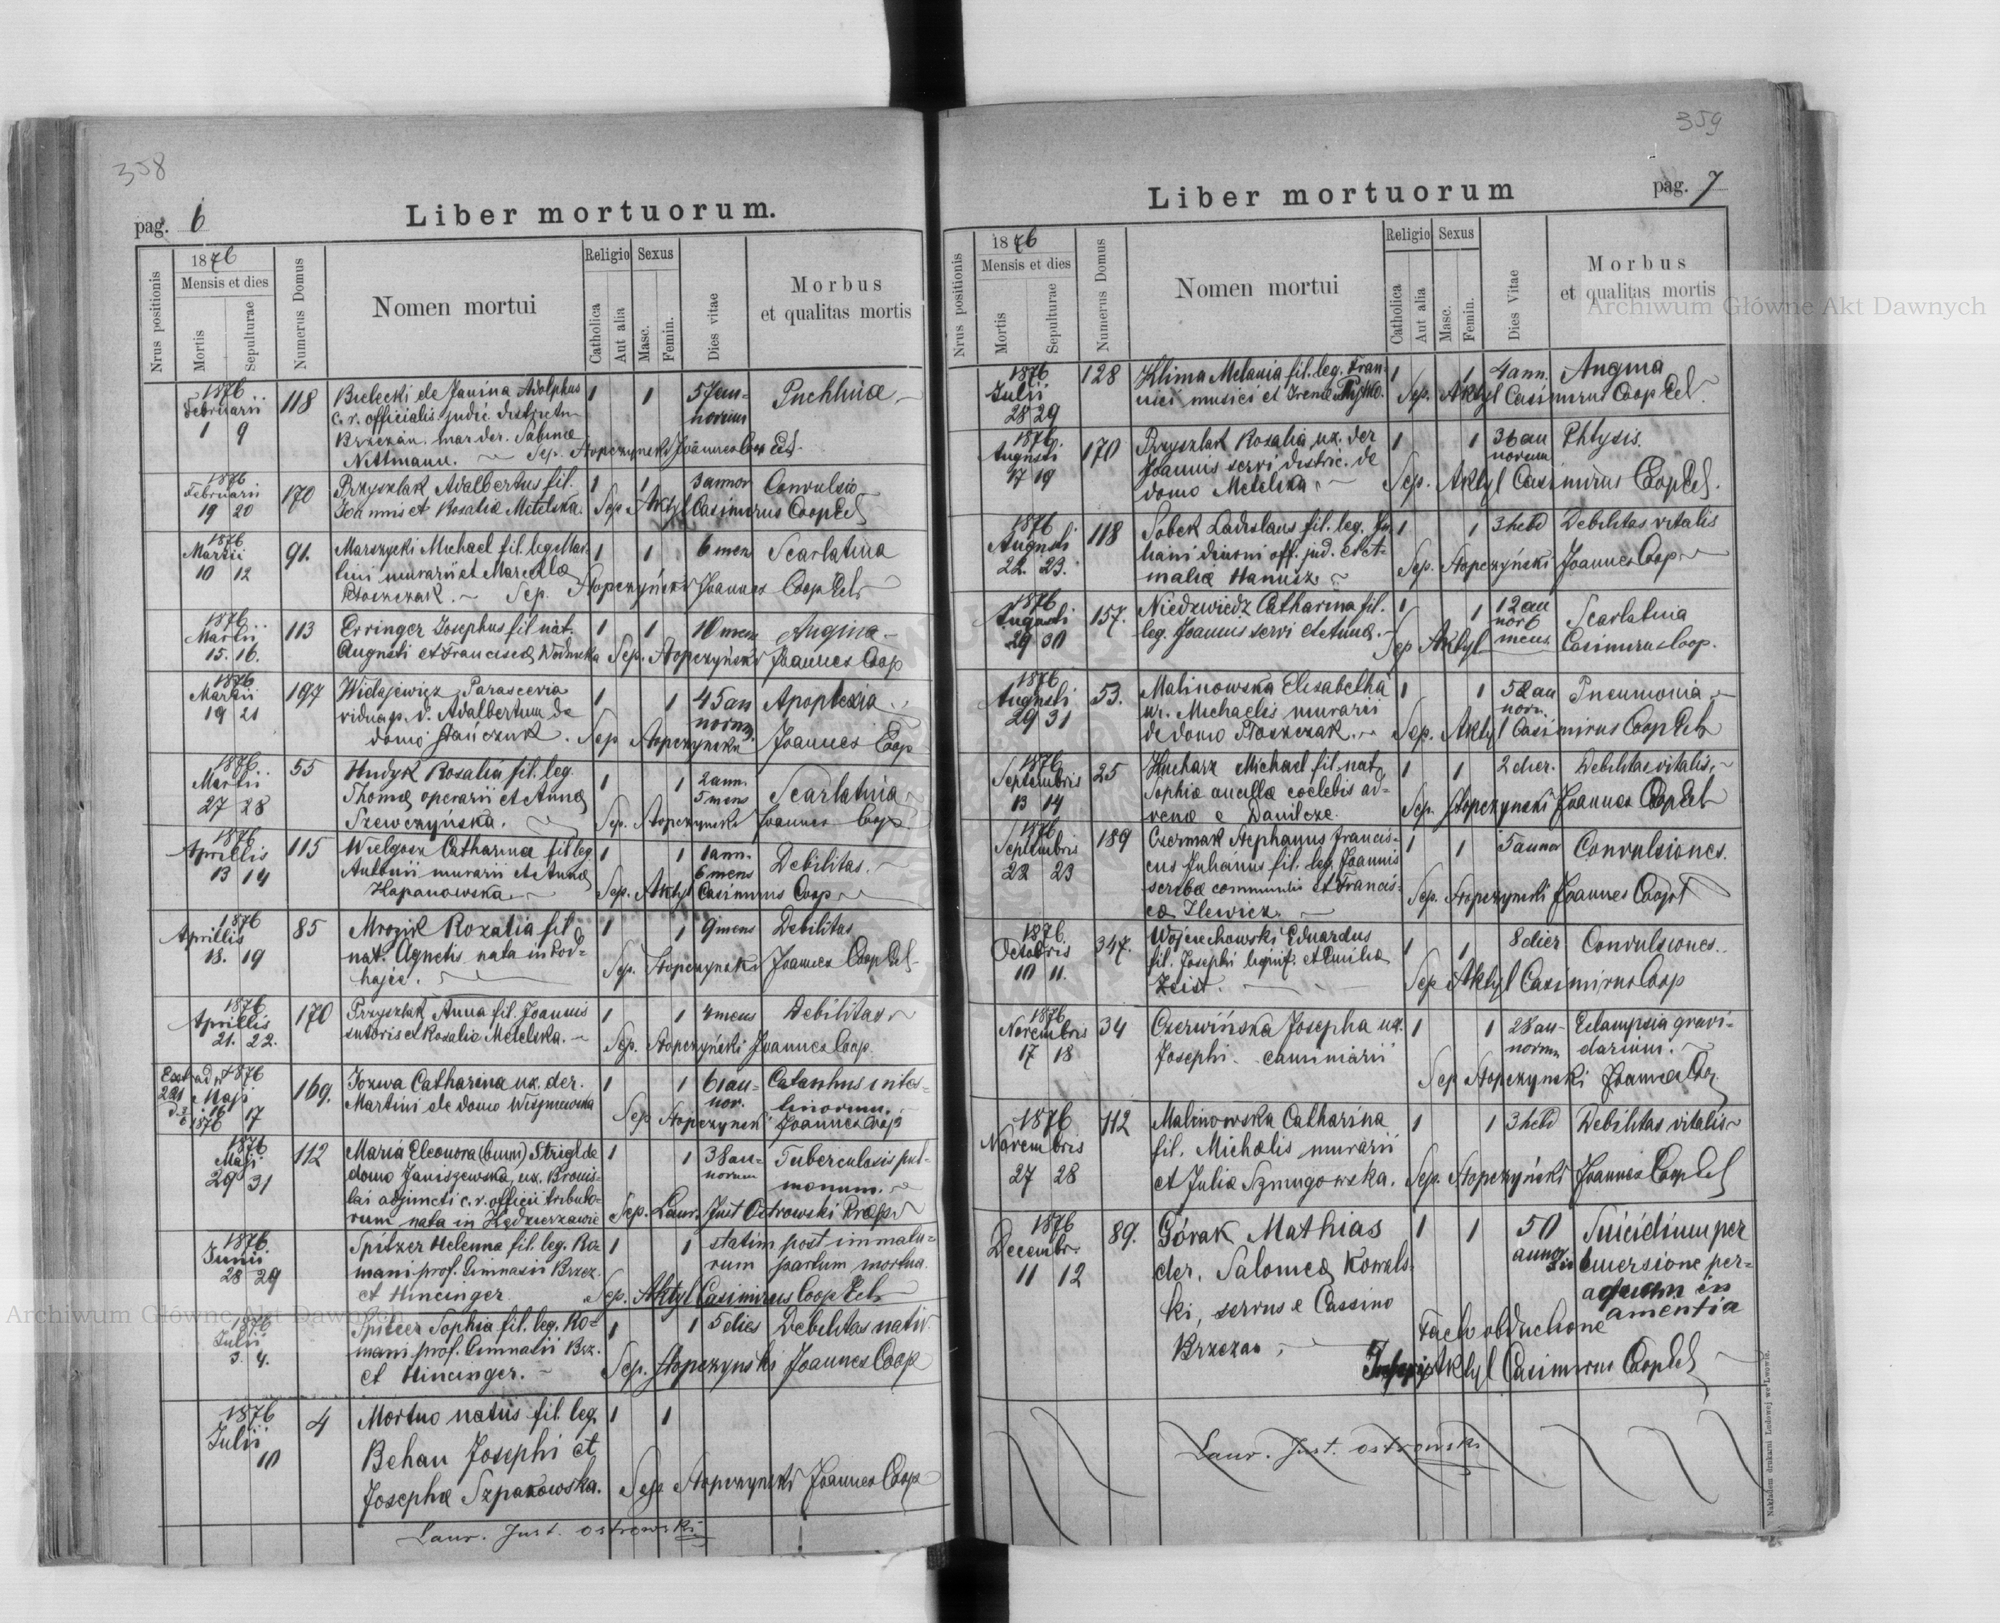 358
pag. 6
Liber mortuorum.
Nrus positionis
1876
Mensis et dies
Mortis
Sepulturae
Numerus Domus
Nomen mortui
Religio
Catholica
Aut alia
Sexus
Masc.
Femin.
Dies vitae
Morbus
et qualitas mortis
1876
Februarii
1 9
118
Bielecki de Janina Adolphus
c. r. officialis judic. districtu
Brzeżan. mar der. Sabinæ
Nittmann. Sep. Stopczyński Joannes Coop Exp.
1 1
57 annorum
Puchlina
1876
Februarii
19 20
170
Przyszlak Adalbertus fil.
Joannis et Rosaliæ Metelska.
1 1
3 annor
Convulsio
Sep. Aktyl Casimirus Coop
1876
Martii
10 12
91.
Marszycki Michael fil. leg. Mar-
tini murarii et Marcellæ
Ptoszczak. Sep. Stopczyński Joannes Coop
1 1
6 mens
Scarlatina
1876
Martii
15. 16.
113
Erringer Josephus fil. nat.
Augusti et Franciscæ
1 1
10 mens
Angina
Sep. Stopczyński Joannes Coop
1876
Martii
19 21
197
Widajewicz Parascevia
vidua p. d. Adalbertum de
domo Stańczuk.
1 1
45 an
norum
Apoplexia
Sep. Stopczyński Joannes Coop
1876
Martii
27 28
55
Hudyk Rosalia fil. leg.
Thomæ operarii et Annæ
Szewczyńska.
1 1
2 ann.
5 mens
Scarlatina
Sep. Stopczyński Joannes Coop
1876
Aprilis
13 14
115
Wielgosz Catharina fil. leg
Antonii murarii et Annæ
Kopanowska
1 1
1 ann.
6 mens
Debilitas.
Sep. Aktyl Casimirus Coop
1876
Aprilis
18. 19
85
Mrozik Rozalia fil
nat. Agnetis nata in Pod-
hajce.
1 1
9 mens
Debilitas
Sep. Stopczyński Joannes Coop
1876
Aprilis
21. 22.
170
Przyszlak Anna fil. Joannis
sutoris et Rosalia Metelska.
1 1
4 mens
Debilitas
Sep. Stopczyński Joannes Coop.
1876
Maji
16 17
169.
Jozwa Catharina ux. der.
Martini de domo Wiśniewska
1 1
61 an-
nor.
Catarrhus intes-
tinorum.
Sep. Stopczyński Joannes Coop
1876
Maji
29 31
112
Maria Eleonora (bum) Strigl de
domo Janiszewska, ux. Bronis-
lai adjuncti c. r. officii tributo-
rum nata in Kędzierzawie
1 1
38 an-
norum
Tuberculosis pul-
monum.
Sep. Laur. Just Ostrowski Præp
1876
Junii
28 29
Spitzer Helenna fil. leg. Ro
mani prof. Gimnasii Brzez.
et Hincinger.
1 1
statim post immatu-
rum partum mortua.
Sep. Aktyl Casimirus Coop
1876
Julii
3 4.
Spitzer Sophia fil. leg. Ro-
mani prof. Gimnasii Brz.
et Hincinger.
1 1
5 dies
Debilitas nativ
Sep. Stopczyński Joannes Coop
1876
Julii
10
4
Mortuo natus fil. leg.
Behan Josephi et
Josepha Szpakowska.
1 1
Sep. Stopczyński Joannes Coop
Laur. Just. Ostrowski
359
Liber mortuorum
pag. 7
Nrus positionis
1876
Mensis et dies
Mortis
Sepulturae
Numerus Domus
Nomen mortui
Religio
Catholica
Aut alia
Sexus
Masc.
Femin.
Dies Vitae
Morbus
et qualitas mortis
1876
Julii
28 29
128
Klima Melania fil. leg. Fran-
cisci musici et Irenæ
1 1
4 ann.
Angina
Sep. Aktyl Casimirus Coop
1876.
Augusti
17 19
170
Przyszlak Rosalia ux. der
Joannis servi distric. de
domo Metelska
1 1
36 an
norum
Phtysis.
Sep. Aktyl Casimirus Coop
1876
Augusti
22. 23.
118
Sobek Ladislaus fil. leg. Ju-
liani diurni off. jud. et et-
maliæ Hanusz
1 1
3 hebd
Debilitas vitalis
Sep. Stopczyński Joannes Coop
1876.
Augusti
29 30
157.
Niedzwiedz Catharina fil.
leg. Joannis servi et Annæ.
1 1
12 an
nor 6
mens
Scarlatina
Sep Aktyl Casimirus Coop.
1876
Augusti
29 31
53.
Malinowska Elisabetha
ux. Michaelis murarii
de domo Ptoszczak.
1 1
52 an
nor.
Pneumonia
Sep. Aktyl Casimirus Coop
1876
Septembris
13 14
25
Kucharz Michael fil. nat
Sophiæ ancillæ coelebis ad-
venæ e Danilcze.
1 1
2 dier.
Debilitas vitalis
Sep. Stopczyński Joannes Coop
1876
Septembris
22 23
189
Czermak Stephanus Francis-
cus Julianus fil. leg. Joannis
scribæ communitis et Francis-
cæ Ilewicz.
1 1
5 annor
Convulsiones.
Sep. Stopczyński Joannes Coop
1876.
Octobris
10 11.
347.
Wojciechowski Eduardus
fil. Josephi lignif. et Emiliæ
Zeist.
1 1
8 dier
Convulsiones.
Sep Aktyl Casimirus Coop
1876
Novembris
17 18
34
Czerwińska Josepha ux.
Josephi caminarii
1 1
28 an-
norum
Eclampsia gravi-
darum.
Sep Stopczyński Joannes
1876
Novembris
27 28
112
Malinowska Catharina
fil. Michælis murarii
et Julia Szmugowska.
1 1
3 hebd
Debilitas vitalis
Sep. Stopczyński Joannes Coop
1876
Decembr.
11 12
89.
Górak Mathias
der. Salomeæ Kowals-
ki, servus e Cassino
Brzezan
1 1
50
annor.
Suicidium per
imersione per-
aquam in
amentia
Facto obductione
Aktyl Casimirus Coop
Laur. Just. Ostrowski
Nakładem drukarni Ludowej we Lwowie.
Archiwum Główne Akt Dawnych
Archiwum Główne Akt Dawnych